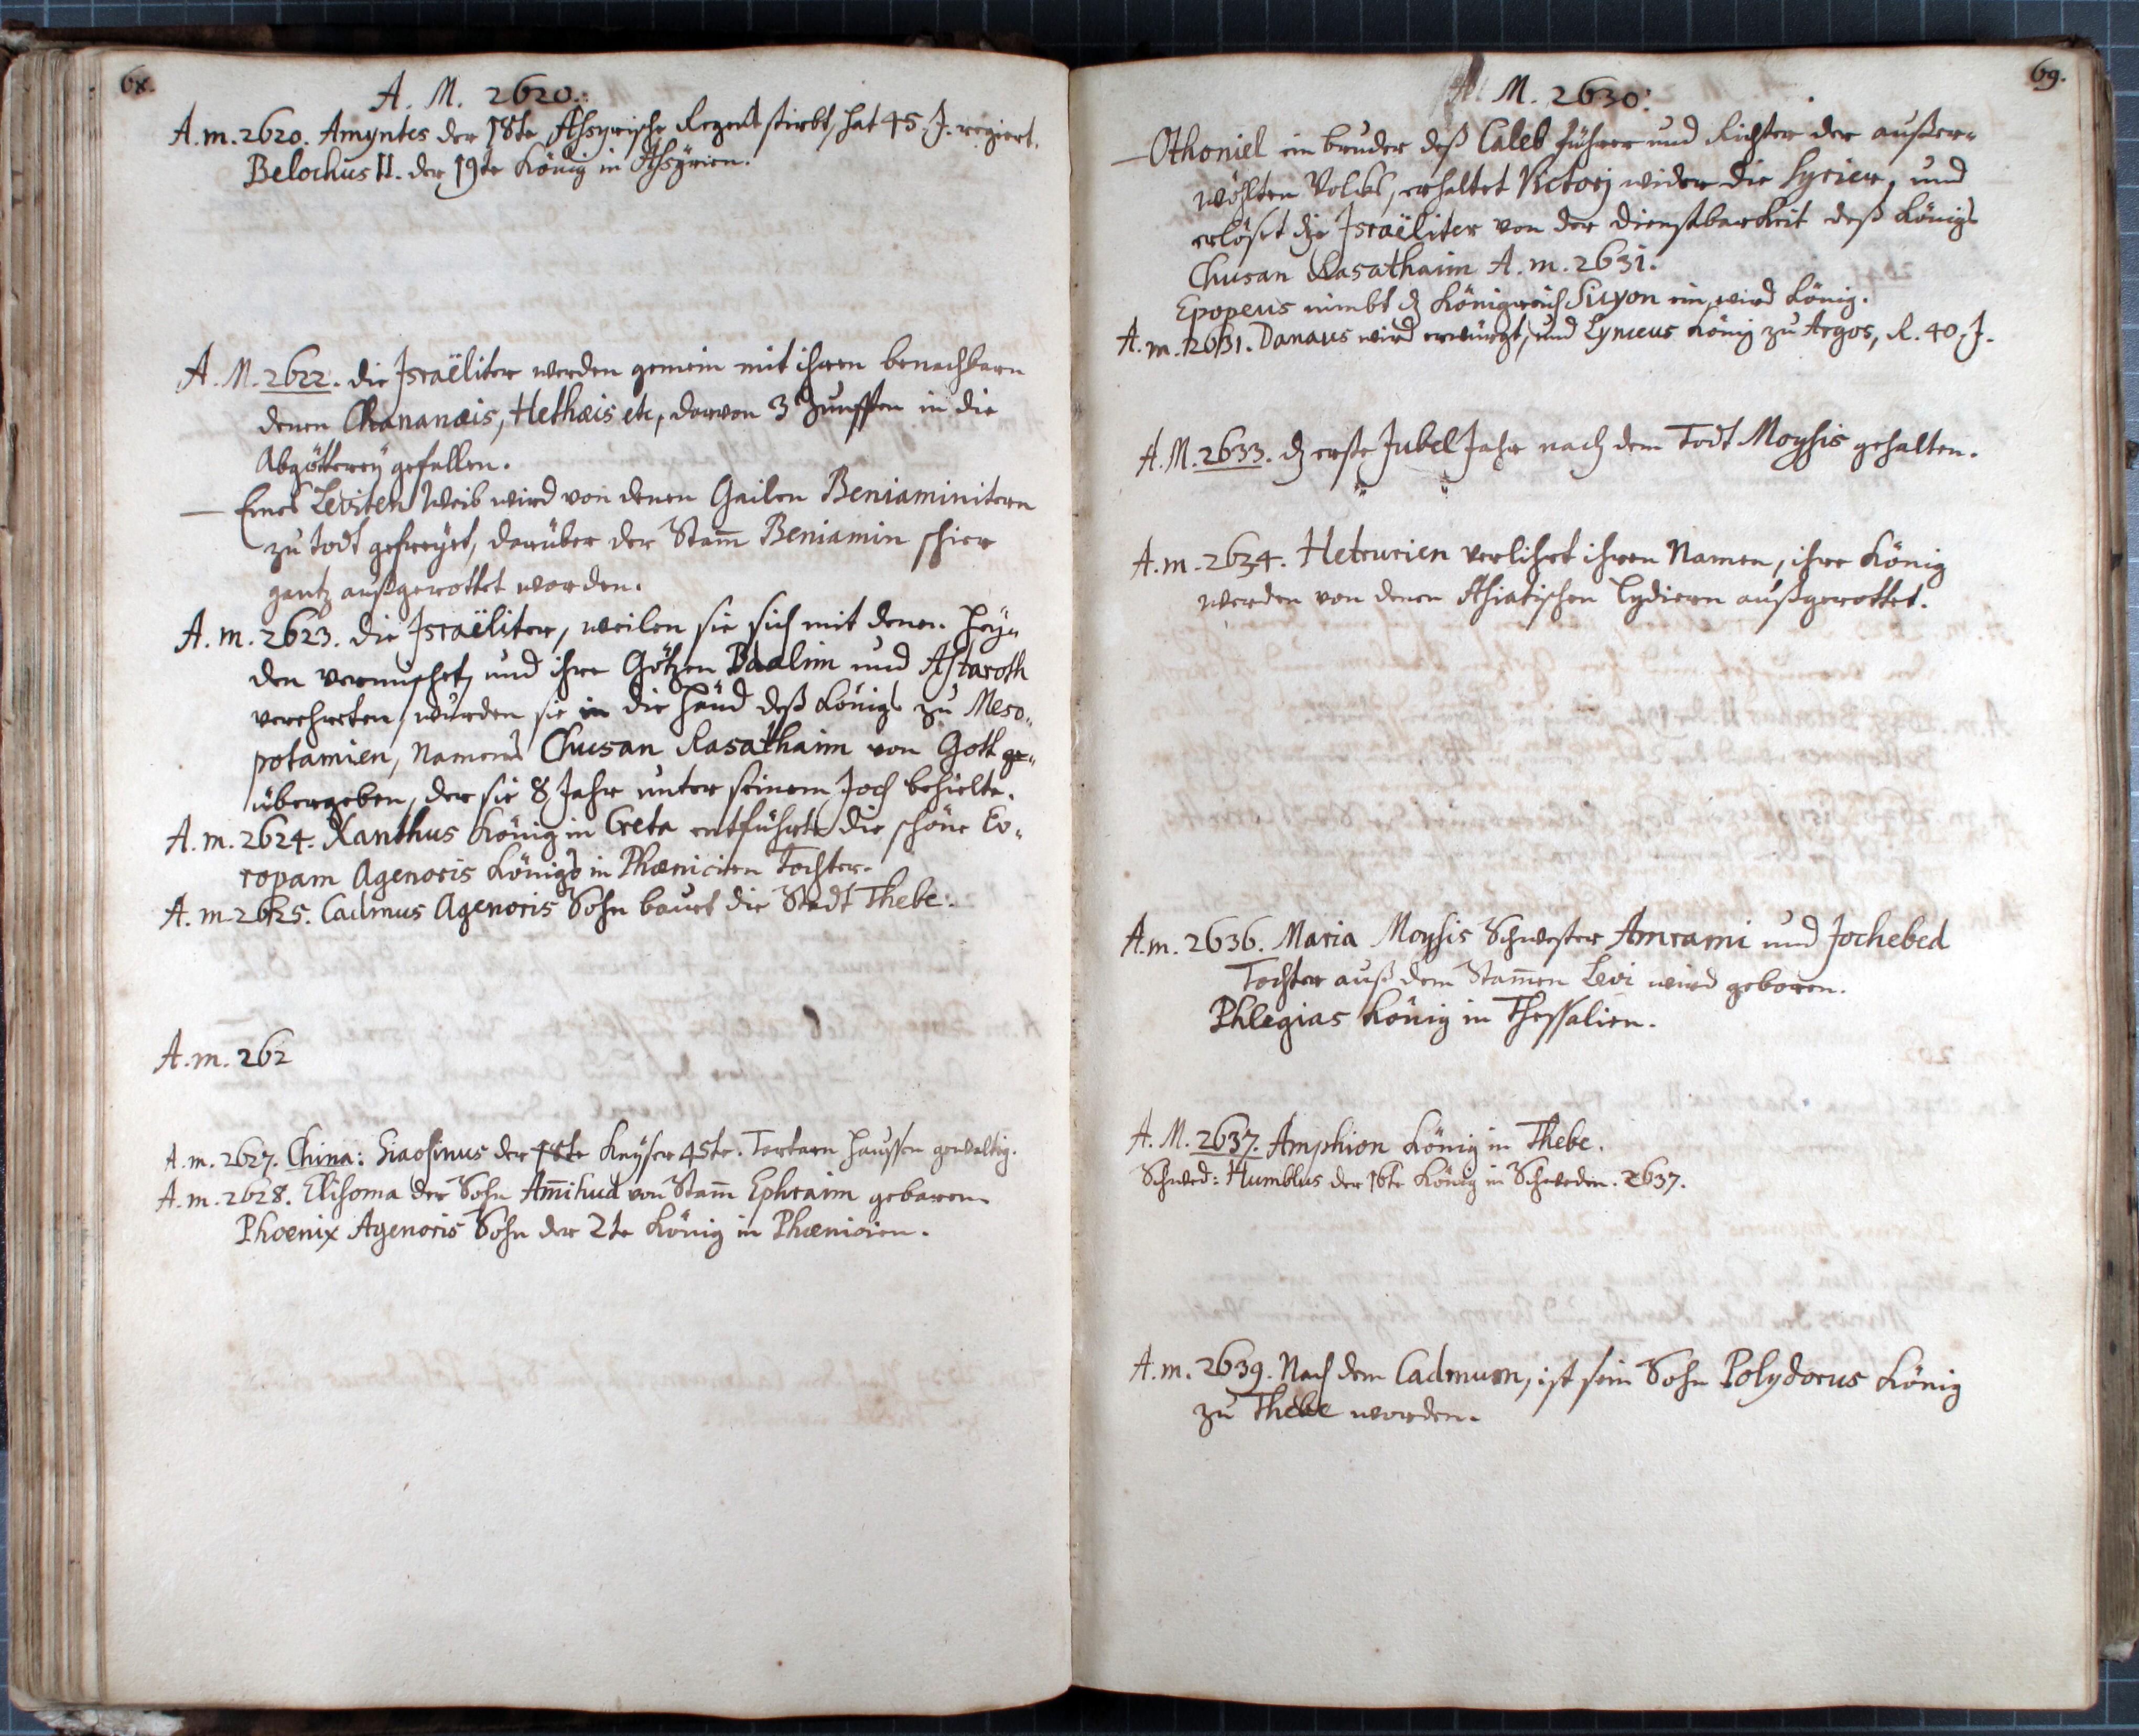 68.
A. M. 2620.
A. m. 2620. Amyntes der 18te Assyrische Regent stirbt, hat 45. J. regiert.
Belochus II. der 19te König in Assyrien.
A. M. 2622. die Israëliter werden gemein mit ihren benachbarn
denen Chananæis, Hethæis etc, darvon 3 Zunfften in die
Abgötterey gefallen.
— Eines Leviten Weib wird von denen Gailen Beniaminitern
zu todt gehreyet, darüber der Stam̄ Beniamin schier
gantz außgerottet worden.
A. m. 2623. die Israëliter, weilen sie sich mit denen Hey„
den vermischet, und ihre Götzen Baalim und Astaroth
verehreten, wurden sie in die Händ deß Königs zu Meso„
potamien, Namens Chusan Rasathaim von Gott ge„
übergeben, der sie 8 Jahr unter seinem Joch behielte.
A. m. 2624. Xanthus König in Creta entführte die schöne Eu„
ropam Agenoris Königs in Phœnicien Tochter.
A. m. 2625. Cadmus Agenoris Sohn bauet die Stadt Thebe.
A. m. 262
A. m. 2627. China: Siaosinus der 18te Kayser 45te. Tartarn haussen gewaltig.
A. m. 2628. Elisoma der Sohn Am̄ihud von Stam̄ Ephraim gebaren.
Phœnix Agenoris Sohn der 2te König in Phœnicien.
69.
A. M. 2630.
— Othoniel ein bruder deß Caleb führer und Richter der außer„
wöhlten Volcks, erhaltet Victorj wider die Syrier, und
erlöset die Israëliter von der dienstbarkeit deß Königs
Chusan Rasathaim A. m. 2631.
Epopeus nimbt dz Königreich Sicyon ein, wird König.
A. m. 2631. Danaus wird erwürgt, und Lynceus König zu Argos, R. 40. J.
A. M. 2633. dz erste Jubel Jahr nach dem Todt Moysis gehalten.
A. m. 2634. Hetrurien verlihrt ihren Namen, ihre König
werden von denen Asiatischen Lydiern außgerottet.
A. m. 2636. Maria Moysis Schwester Amrami und Jochebed
Tochter auß dem Stam̄en Levi wird geboren.
Phlegias König in Thessalien.
A. M. 2637. Amphion König in Thebe.
Schwed: Humblus der 16te König in Schweden. 2637.
A. m. 2639. Nach dem Cadmum, ist sein Sohn Polydorus König
zu Thebe worden.